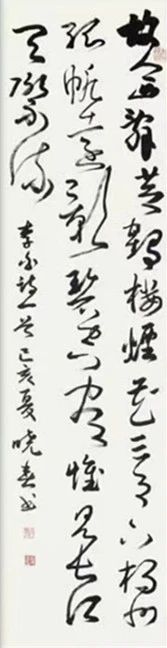 故人西辭黃鶴樓煙花三月下揚州
孤帆遠影碧空盡惟見長江
天際流
李白詩一首己亥夏曉春書